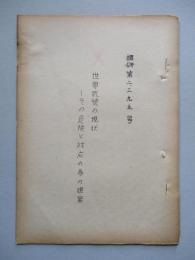 調研第二二九五号
世界貿易の現状
―その危険と対応の為の提案